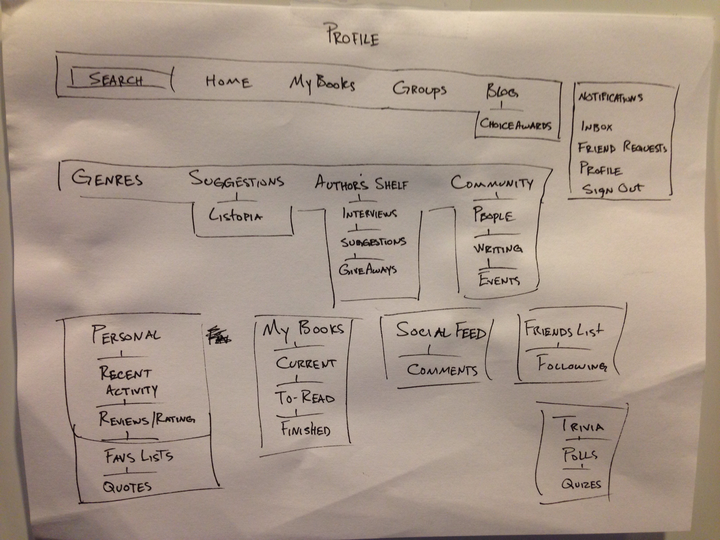 PROFILE
SEARCH HOME MY BOOKS GROUPS BLOG
CHOICE AWARDS
NOTIFICATIONS
INBOX
FRIEND REQUESTS
PROFILE
SIGN OUT
GENRES SUGGESTIONS AUTHOR'S SHELF COMMUNITY
LISTOPIA
INTERVIEWS
SUGGESTIONS
GIVEAWAYS
PEOPLE
WRITING
EVENTS
PERSONAL
RECENT
ACTIVITY
REVIEWS/RATING
FAVS LISTS
QUOTES
MY BOOKS
CURRENT
TO-READ
FINISHED
SOCIAL FEED
COMMENTS
FRIENDS LIST
FOLLOWING
TRIVIA
POLLS
QUIZES